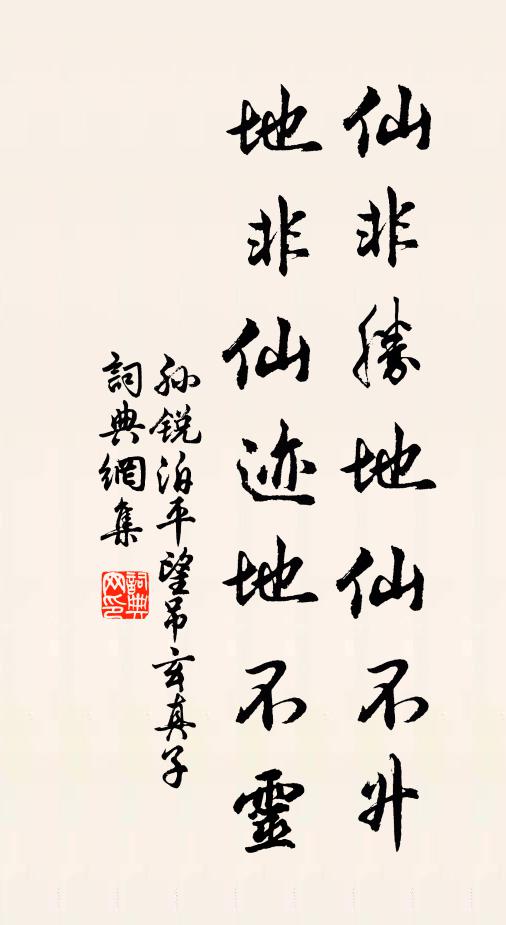 仙非勝地仙不升
地非仙迹地不靈
孙锐泊平望吊玄真子
詞典網集
詞典网印